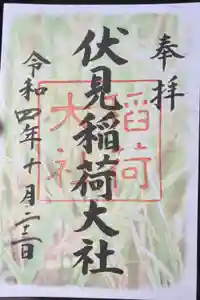 奉拝
伏見稲荷大社
稲荷
大社
令和四年十月